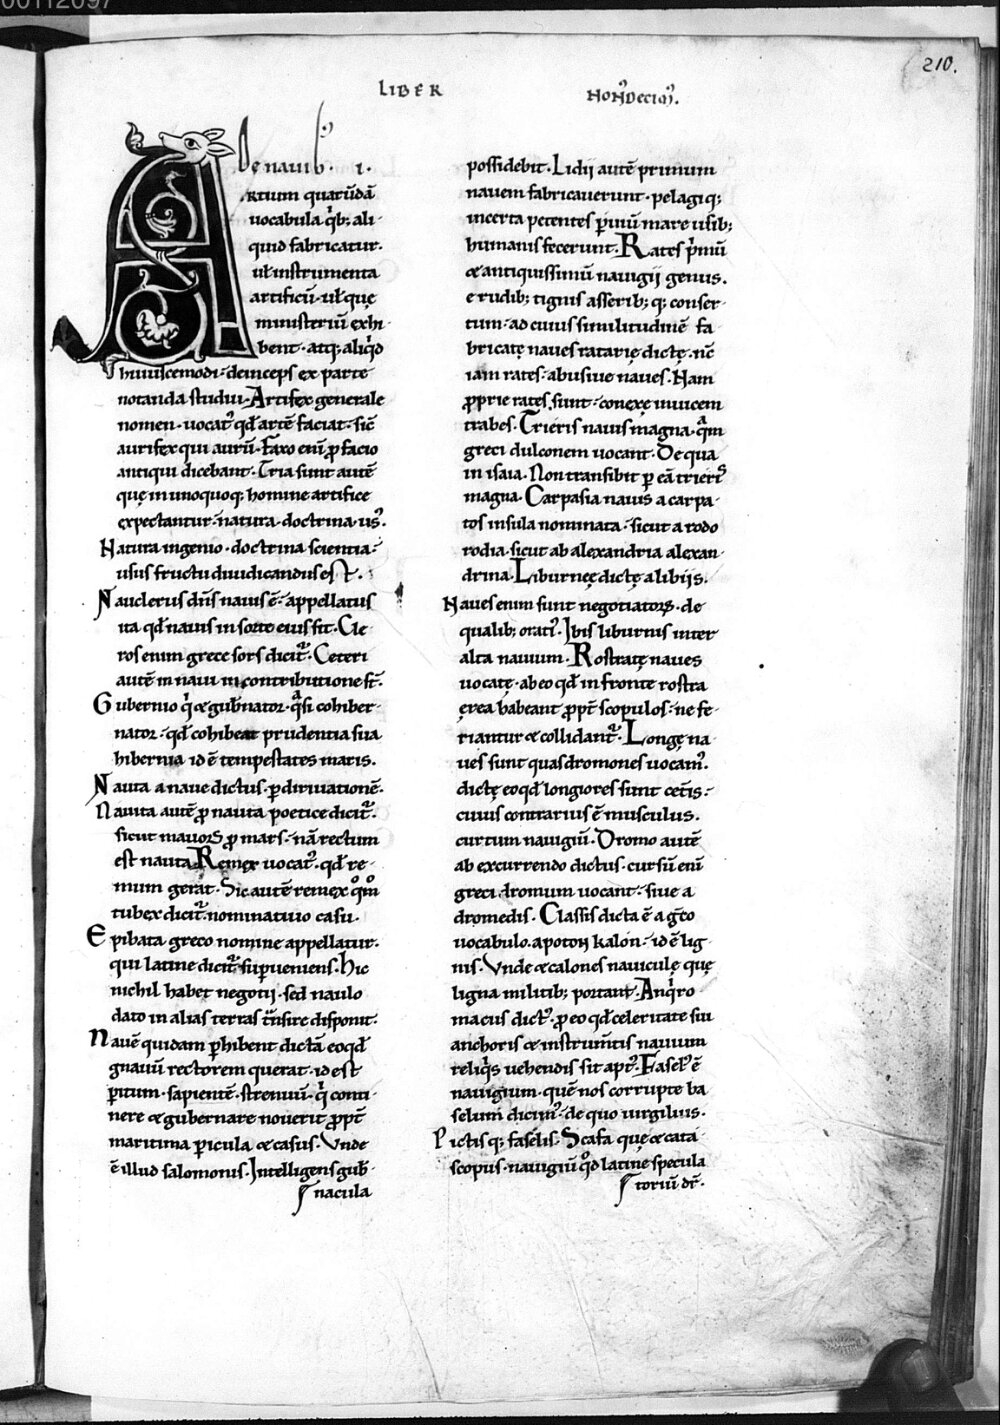 00112097
210.
LIBER NONDECIM᷒.
De nauib᷒. i.
Artium quarūdā
uocabula q̇b; ali-
quid fabricatur.
uł instrumenta
artificū. uł quę
ministeriū exhi-
bent. atq; aliq̇d
huiuscemodi: deinceps ex parte
notanda studui. Artifex generale
nomen. uocat᷒ qđ artē faciat: sic̄
aurifex qui aurū. Faxo eni᷒ ꝓ facio
antiqui dicebant. Tria sunt autē
quę in unoquoq; homine artifice
expectantur: natura. doctrina. us᷒.
Natura ingenio. doctrina scientia:
usus fructu diiudicandus est.
Nauclerus dn̄s nauis ē: appellatus
ita qđ nauis in sorte eius sit. Cle-
ros enim grece sors dicit᷒. Ceteri
autē in naui in contributione st̄.
Gubernio q̇ & gub̄nator. q̄si cohiber-
nator: qđ cohibeat prudentia sua
hibernia id ē tempestates maris.
Nauta a naue dictus. ꝑ diriuationē.
Nauita autē ꝓ nauta poetice dicit᷒.
sicut mauors ꝓ mars: nā rectum
est nauta. Remex uocat᷒. qđ re-
mum gerat. Sic autē remex qͦmͦ
tubex dicit᷒. nominatiuo casu.
Epibata greco nomine appellatur.
qui latine dicit᷒ suꝑueniens. hic
nichil habet negotij. sed naulo
dato in alias terras t̄nsire disponit.
Nauē quidam ꝑhibent dictā eo qđ
gnauū rectorem querat. id est
ꝑitum. sapientē. strenuū. q̇ conti-
nere & gubernare nouerit ꝓpt̄
maritima ꝑicula & casus. Vnde
ē illud salomonis. Intelligens gub̄-
nacula
possidebit. Lidij autē primum
nauem fabricauerunt. pelagiq;
incerta petentes ꝑuiū mare usib;
humanis fecerunt. Rates ṗmū
& antiquissimū nauigij genus.
e rudib; tignis asserib; q; conser-
tum: ad cuius similitudinē fa-
bricatę naues ratarię dictę. nc̄
iam rates: abusiue naues. Nam
ꝓprie rates sunt: conexę inuicem
trabes. Trieris nauis magna. quam
greci dulconem uocant. De qua
in isaia. Non transibit ꝑ eā trieris
magna. Carpasia nauis a carpa-
tos insula nominata: sicut a rodo
rodia. sicut ab alexandria alexan-
drina. Liburnę dictę a libijs.
Naues enim sunt negotiatorꝝ. de
qualib; orati᷒. Ibis liburnis inter
alta nauium. Rostratę naues
uocatę. ab eo qđ in fronte rostra
ęrea habeant ꝓpt̄ scopulos: ne fe-
riantur & collidant᷒. Longę na-
ues sunt quas dromones uocam᷒.
dictę eo qđ longiores sunt cet̄is:
cuius contrarius ē musculus.
curtum nauigiū. Dromo autē
ab excurrendo dictus. cursū eni᷒
greci dromum uocant: siue a
dromedis. Classis dicta ē a grēco
uocabulo. apo toy kalon: id ē lig-
nis. Vnde & calones nauiculę quę
ligna militib; portant. Anq̇ro-
macus dict᷒. ꝓ eo qđ celeritate sui
anchoris & instrum̄tis nauium
reliq̇s uehendis sit apt᷒. Fasel᷒ ē
nauigium. quē nos corrupte ba-
selum dicim᷒. de quo uirgilius.
Pictisq; faselis. Scafa quę & cata-
scopus. nauigiū qͦd latine specula-
toriū dr̄.